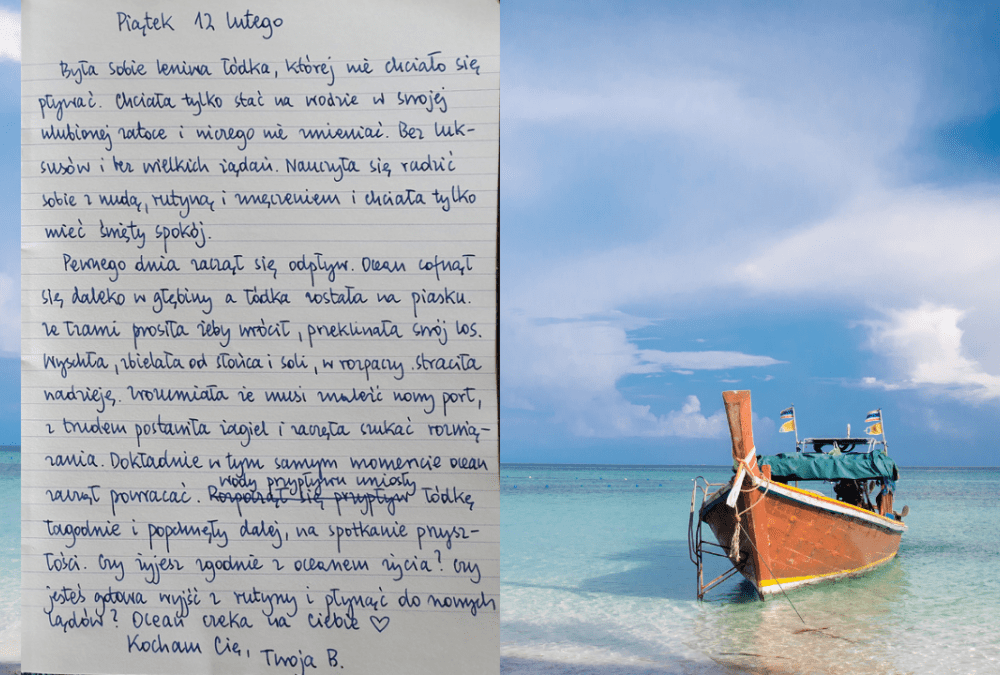 Piątek 12 lutego
Była sobie leniwa łódka, której nie chciało się
pływać. Chciała tylko stać na wodzie w swojej
ulubionej zatoce i niczego nie zmieniać. Bez luk-
susów i bez wielkich żądań. Nauczyła się radzić
sobie z nudą, rutyną i zmęczeniem i chciała tylko
mieć święty spokój.
Pewnego dnia zaczął się odpływ. Ocean cofnął
się daleko w głębiny a łódka została na piasku.
Ze łzami prosiła żeby wrócił, przeklinała swój los.
Wyschła, zbielała od słońca i soli, w rozpaczy straciła
nadzieję. Zrozumiała że musi znaleźć nowy port,
z trudem postawiła żagiel i zaczęła szukać rozwią-
zania. Dokładnie w tym samym momencie ocean
wody przypływu uniosły
zaczął powracać. Rozpoczął się przypływ łódkę
łagodnie i popchnęły dalej, na spotkanie przysz-
łości. Czy żyjesz zgodnie z oceanem życia? Czy
jesteś gotowa wyjść z rutyny i płynąć do nowych
lądów? Ocean czeka na Ciebie ♡
Kocham Cię, Twoja B.